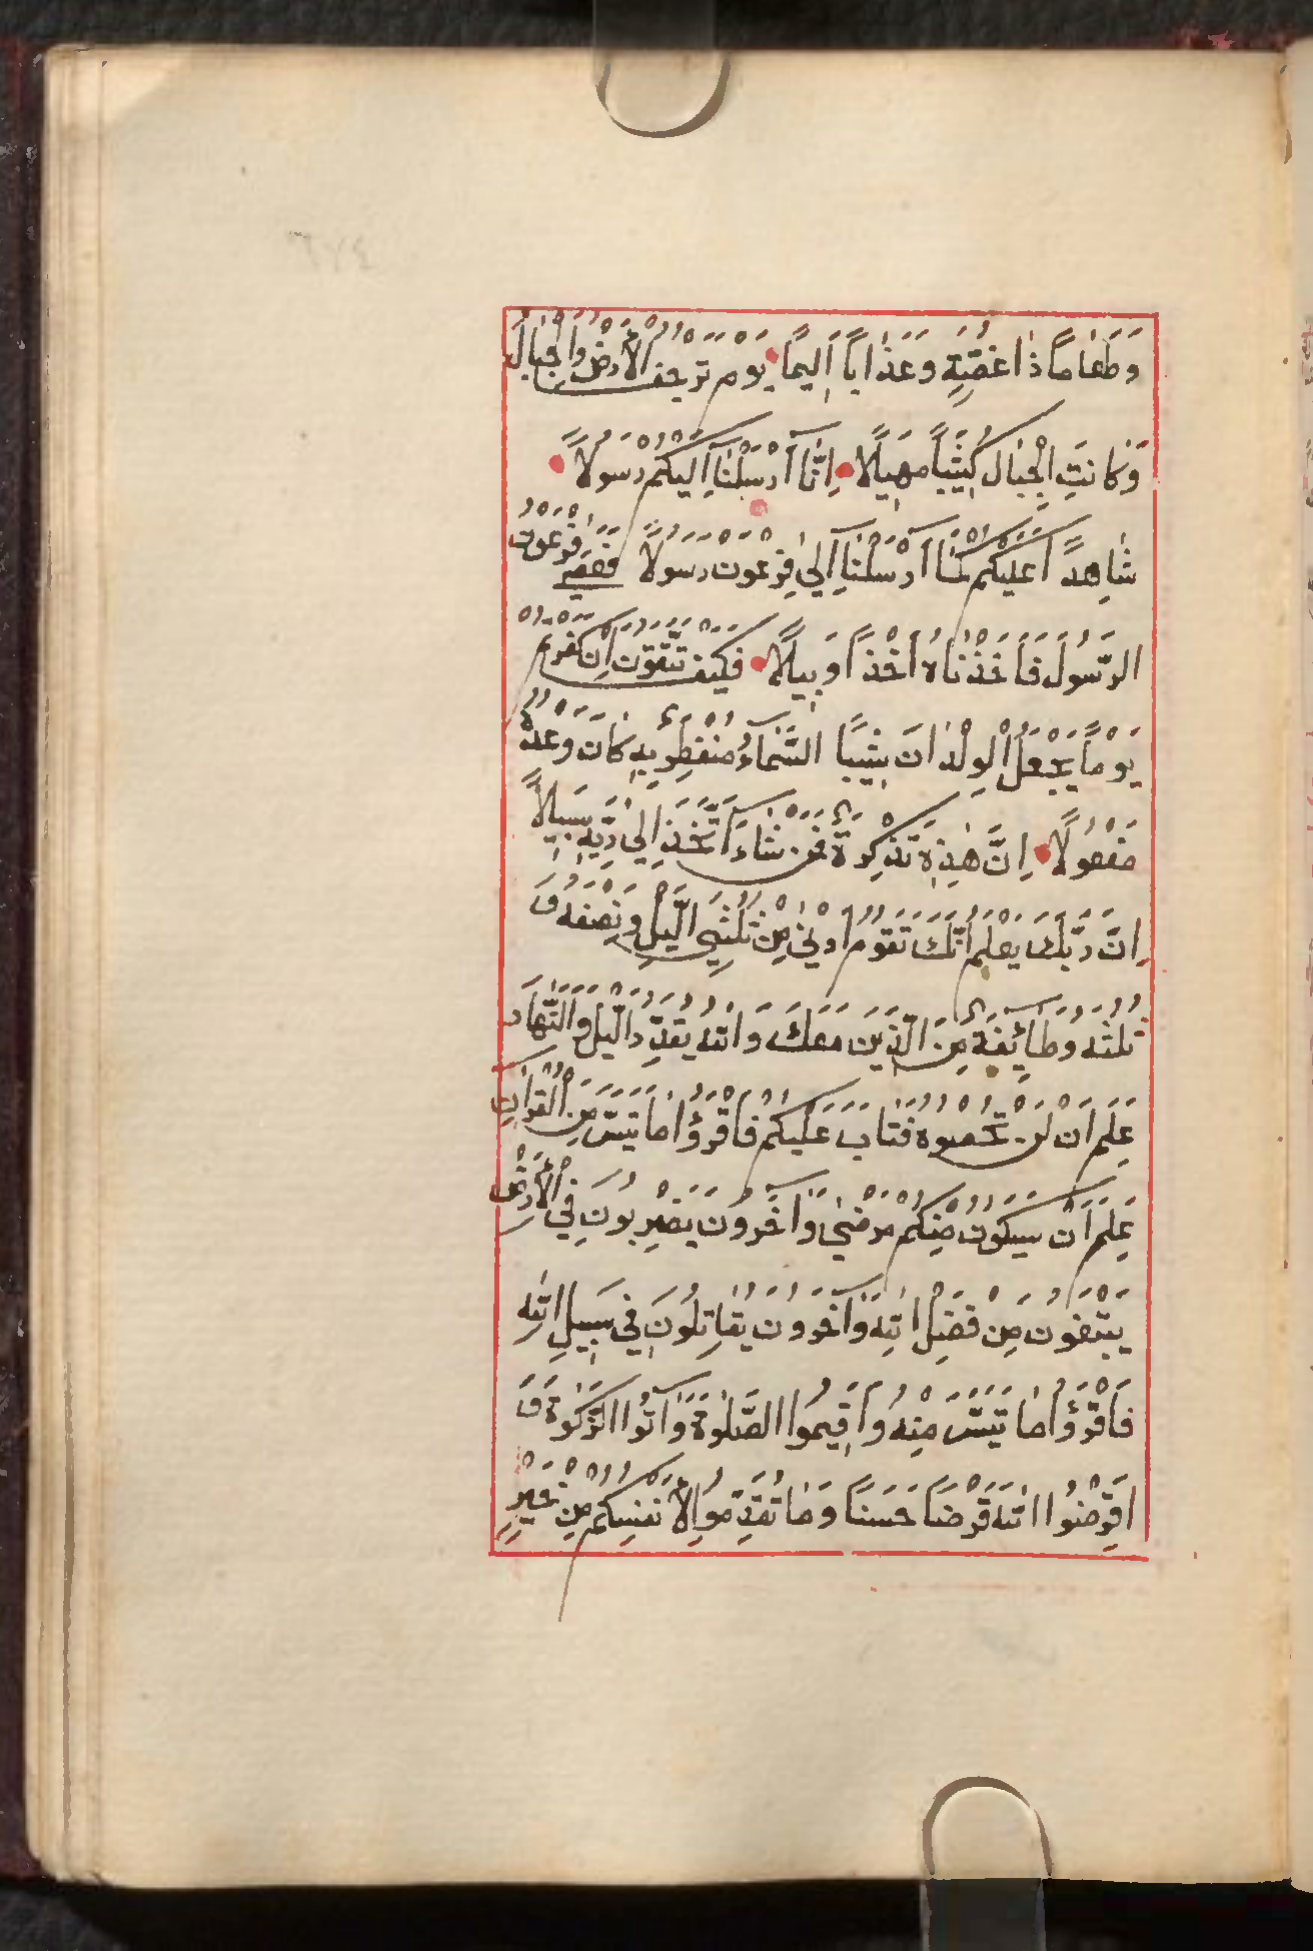 وَطَعَامًا ذَا غُصَّةٍ وَعَذَابًا أَلِيمًا يَوْمَ تَرْجُفُ الْأَرْضُ وَالْجِبَالُ
وَكَانَتِ الْجِبَالُ كَثِيبًا مَهِيلًا إِنَّا أَرْسَلْنَا إِلَيْكُمْ رَسُولًا
شَاهِدًا عَلَيْكُمْ كَمَا أَرْسَلْنَا إِلَى فِرْعَوْنَ رَسُولًا فَعَصَى فِرْعَوْنُ
الرَّسُولَ فَأَخَذْنَاهُ أَخْذًا وَبِيلًا فَكَيْفَ تَتَّقُونَ إِنْ كَفَرْتُمْ
يَوْمًا يَجْعَلُ الْوِلْدَانَ شِيبًا السَّمَاءُ مُنْفَطِرٌ بِهِ كَانَ وَعْدُهُ
مَفْعُولًا إِنَّ هَذِهِ تَذْكِرَةٌ فَمَنْ شَاءَ اتَّخَذَ إِلَى رَبِّهِ سَبِيلًا
إِنَّ رَبَّكَ يَعْلَمُ أَنَّكَ تَقُومُ أَدْنَى مِنْ ثُلُثَيِ الَّيْلِ وَنِصْفَهُ وَ
ثُلُثَهُ وَطَائِفَةٌ مِنَ الَّذِينَ مَعَكَ وَاللهُ يُقَدِّرُ الَّيْلَ وَالنَّهَارَ
عَلِمَ أَنْ لَنْ تُحْصُوهُ فَتَابَ عَلَيْكُمْ فَاقْرَؤُا مَا تَيَسَّرَ مِنَ الْقُرْآنِ
عَلِمَ أَنْ سَيَكُونُ مِنْكُمْ مَرْضَى وَآخَرُونَ يَضْرِبُونَ فِي الْأَرْضِ
يَبْتَغُونَ مِنْ فَضْلِ اللهِ وَآخَرُونَ يُقَاتِلُونَ فِي سَبِيلِ اللهِ
فَاقْرَؤُا مَا تَيَسَّرَ مِنْهُ وَأَقِيمُوا الصَّلَوةَ وَآتُوا الزَّكَوةَ وَ
اقْرِضُوا اللهَ قَرْضًا حَسَنًا وَمَا تُقَدِّمُوا لِأَنْفُسِكُمْ مِنْ خَيْرٍ